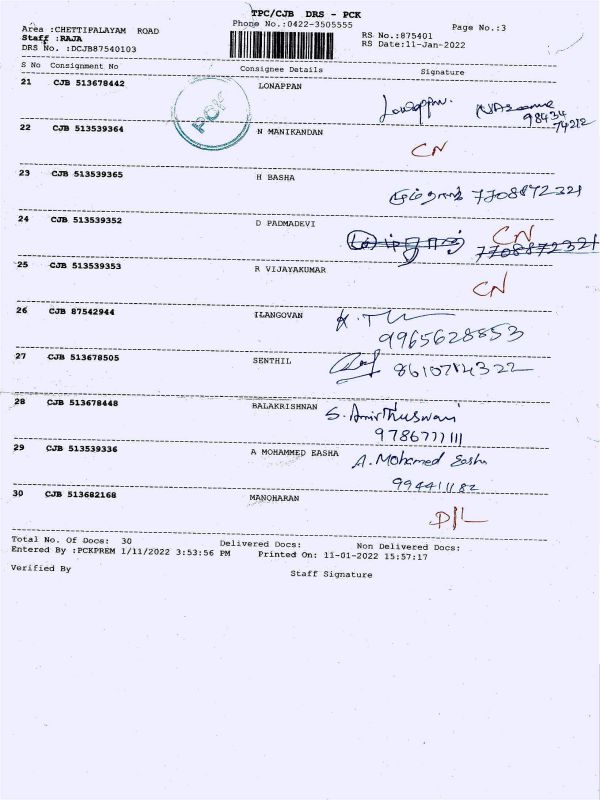 TPC/CJB DRS - PCK
Area :CHETTIPALAYAM ROAD Phone No.:0422-3505555 Page No.:3
Staff :RAJA RS No.:875401
DRS No. :DCJB87540103 RS Date:11-Jan-2022
S No Consignment No Consignee Details Signature
21 CJB 513678442 LONAPPAN
PCK
Lonappan. 98434
74212
22 CJB 513539364 N MANIKANDAN
CN
23 CJB 513539365 H BASHA
7708872321
24 CJB 513539352 D PADMADEVI
CN
7708872321
25 CJB 513539353 R VIJAYAKUMAR
CN
26 CJB 87542944 ILANGOVAN
9965628853
27 CJB 513678505 SENTHIL
28 CJB 513678448 BALAKRISHNAN S. Amirthuswari
9786777111
29 CJB 513539336 A MOHAMMED EASHA A. Mohamed Easha
994411182
30 CJB 513682168 MANOHARAN
D/L
Total No. Of Docs: 30 Delivered Docs: Non Delivered Docs:
Entered By :PCKPREM 1/11/2022 3:53:56 PM Printed On: 11-01-2022 15:57:17
Verified By Staff Signature